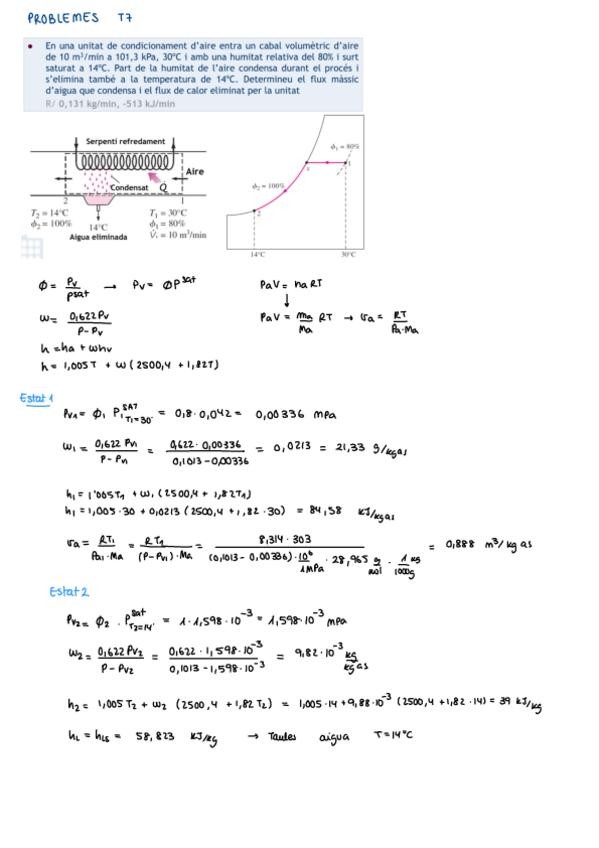 PROBLEMES T7
• En una unitat de condicionament d'aire entra un cabal volumètric d'aire
de 10 m³/min a 101,3 kPa, 30ºC i amb una humitat relativa del 80% i surt
saturat a 14ºC. Part de la humitat de l'aire condensa durant el procés i
s'elimina també a la temperatura de 14ºC. Determineu el flux màssic
d'aigua que condensa i el flux de calor eliminat per la unitat
R/ 0,131 kg/min, -513 kJ/min
Serpentí refredament
Aire
Condensat Q̇
2 1
T₂ = 14°C
ϕ₂ = 100%
14°C
Aigua eliminada
T₁ = 30°C
ϕ₁ = 80%
V̇₁ = 10 m³/min
ϕ₁ = 80%
ϕ₂ = 100%
1
2
14°C 30°C
Ø = Pv/Psat → Pv = ØP^sat
ω = 0,622Pv/(P-Pv)
h = ha + whv
h = 1,005T + ω(2500,4 + 1,82T)
PaV = naRT
↓
PaV = ma/Ma RT → va = RT/(Pa·Ma)
Estat 1
Pv1 = ϕ₁ P₁^SAT T1=30º = 0,8·0,042 = 0,00336 mpa
ω₁ = 0,622 Pv1/(P-Pv1) = 0,622·0,00336/(0,1013-0,00336) = 0,0213 = 21,33 g/kgas
h₁ = 1'005T₁ + ω₁(2500,4 + 1,82T₁)
h₁ = 1,005·30 + 0,0213(2500,4 + 1,82·30) = 84,58 kJ/kgas
va = RT₁/(Pa1·Ma) = RT₁/((P-Pv1)·Ma) = 8,314·303/((0,1013-0,00336)·10⁶/1MPa · 28,965 g/mol · 1kg/1000g) = 0,888 m³/kg as
Estat 2
Pv2 = ϕ₂ · P^sat T2=14º = 1·1,598·10⁻³ = 1,598·10⁻³ mpa
ω₂ = 0,622 Pv2/(P-Pv2) = 0,622·1,598·10⁻³/(0,1013-1,598·10⁻³) = 9,82·10⁻³ kg/kgas
h₂ = 1,005T₂ + ω₂ (2500,4 + 1,82T₂) = 1,005·14 + 9,88·10⁻³ (2500,4 + 1,82·14) = 39 kJ/kg
hL = hLS = 58,823 kJ/kg → Taules aigua T=14ºC